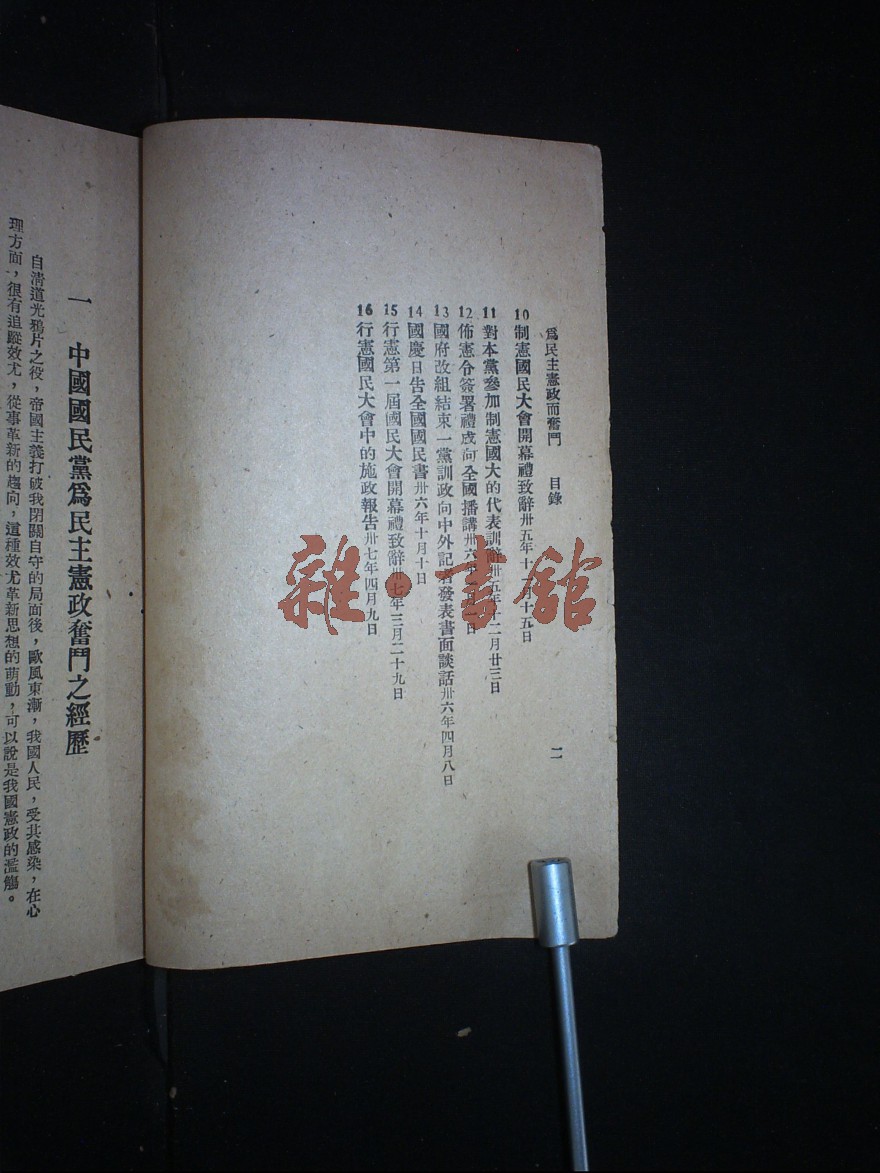 爲民主憲政而奮鬥 目錄 二
10 制憲國民大會開幕禮致辭卅五年十一月十五日
11 對本黨參加制憲國大的代表訓辭卅五年十二月廿三日
12 佈憲令簽署禮成向全國播講卅六年 月 日
13 國府改組結束一黨訓政向中外記者發表書面談話卅六年四月八日
14 國慶日告全國國民書卅六年十月十日
15 行憲第一屆國民大會開幕禮致辭卅七年三月二十九日
16 行憲國民大會中的施政報告卅七年四月九日
一 中國國民黨爲民主憲政奮鬥之經歷
自淸道光鴉片之役，帝國主義打破我閉關自守的局面後，歐風東漸，我國人民，受其感染，在心
理方面，很有追蹤效尤，從事革新的趨向，這種效尤革新思想的萌動，可以說是我國憲政的濫觴。
雜·書館